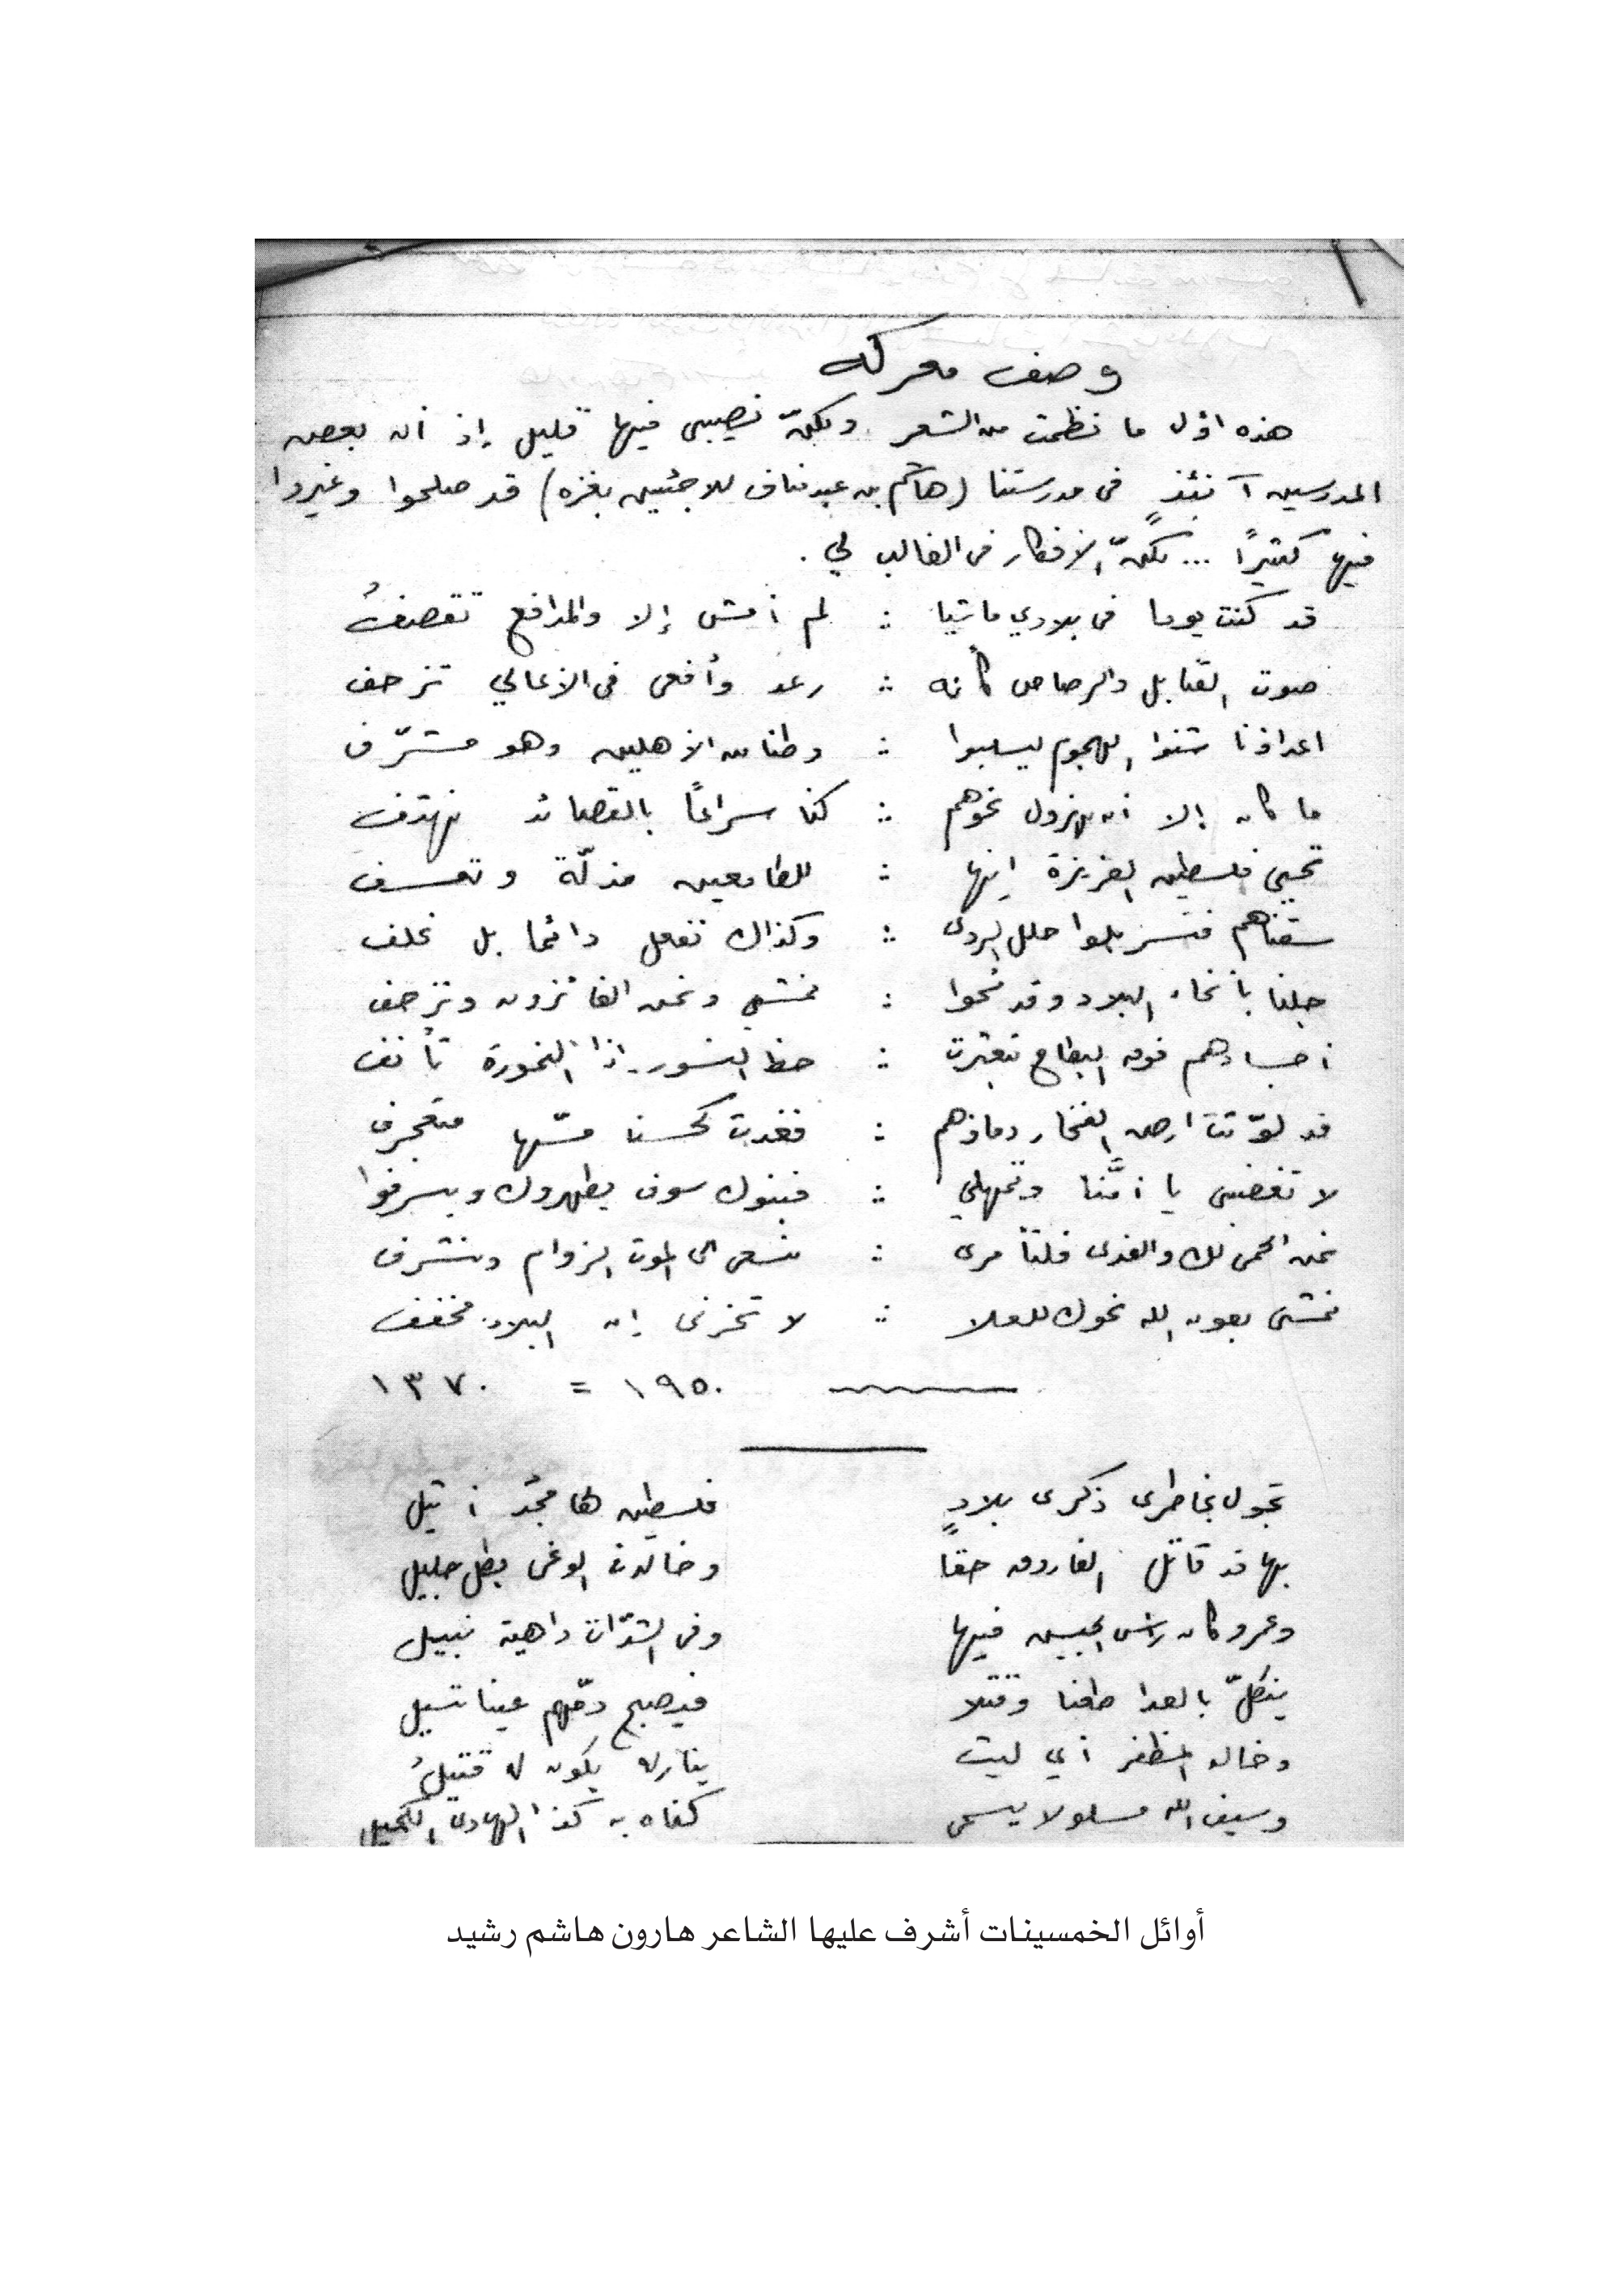 وصف معركه
هذه اوّل ما نظمت من الشعر ولكنّ نصيبى فيها قليل إذ أن بعض
المدرسين آنئذٍ فى مدرستنا (هاشم بن عبد مناف للاجئين بغزه) قد صلحوا وغيروا
فيها كثيرًا ... لكنّ الافكار فى الغالب لي .
قد كنت يوما فى بلادي ماشيا :: لم أمش إلا والمدافع تقصفُ
صوت القنابل والرصاص كأنه :: رعد وأفعى فى الأعالي تزحف
اعداؤنا شنوا الهجوم ليسلبوا :: وطنا من الأهلين وهو مشرّف
ما كان إلا أن نهرول نحوهم :: كنا سراعًا بالقصائد نهتف
تحيي فلسطين العزيزة إنها :: للطامعين مذلّة وتعسف
سقناهم فتسربلوا حلل الردى :: وكذاك نفعل دائما بل نحلف
جلنا بأنحاء البلاد وقد نحوا :: نمشي ونحن الفائزون ونزحف
أجسادهم فوق البطاح تبعثرت :: حظ النسور إذا النمورة تأنف
قد لوّثت ارض الفخار دماؤهم :: فغدت كحسنا مسّها متعجرف
لا تغضبى يا أمَّنا وتمهلي :: فبنوك سوف يطهروك ويسرفوا
نحن الحمى لك والفدى فلتأمرى :: نسعى الى الموت الزوام ونشرف
نمشى بعون الله نحوك للعلا :: لا تحزنى إن البلاد مخفف
١٩٥٠ = ١٣٧٠
تجول بخاطرى ذكرى بلادٍ فلسطين لها مجدٌ أثيل
بها قد قاتل الفاروق حقا وخالدنا الوغى بطل جليل
وعمرو كان رأس الجيش فيها وفى الشدّات داهية نبيل
ينكلّ بالعدا طعنا وقتلا فيصبح دمّهم عينا تسيل
وخالد المظفر أي ليث ينازله يكون له قتيلُ
وسيف الله مسلولا يسمى كفاه به كذا الهادى الكحيل
أوائل الخمسينات أشرف عليها الشاعر هارون هاشم رشيد